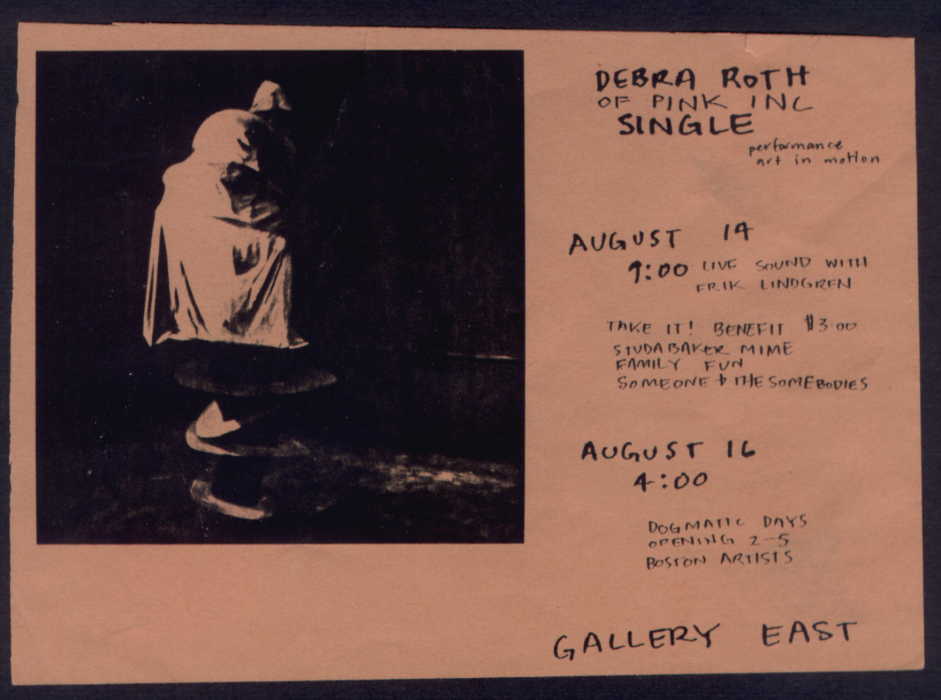 DEBRA ROTH
OF PINK INC
SINGLE
performance
art in motion
AUGUST 14
9:00 LIVE SOUND WITH
ERIK LINDGREN
TAKE IT! BENEFIT $3.00
STUDABAKER MIME
FAMILY FUN
SOMEONE & THE SOMEBODIES
AUGUST 16
4:00
DOGMATIC DAYS
OPENING 2-5
BOSTON ARTISTS
GALLERY EAST